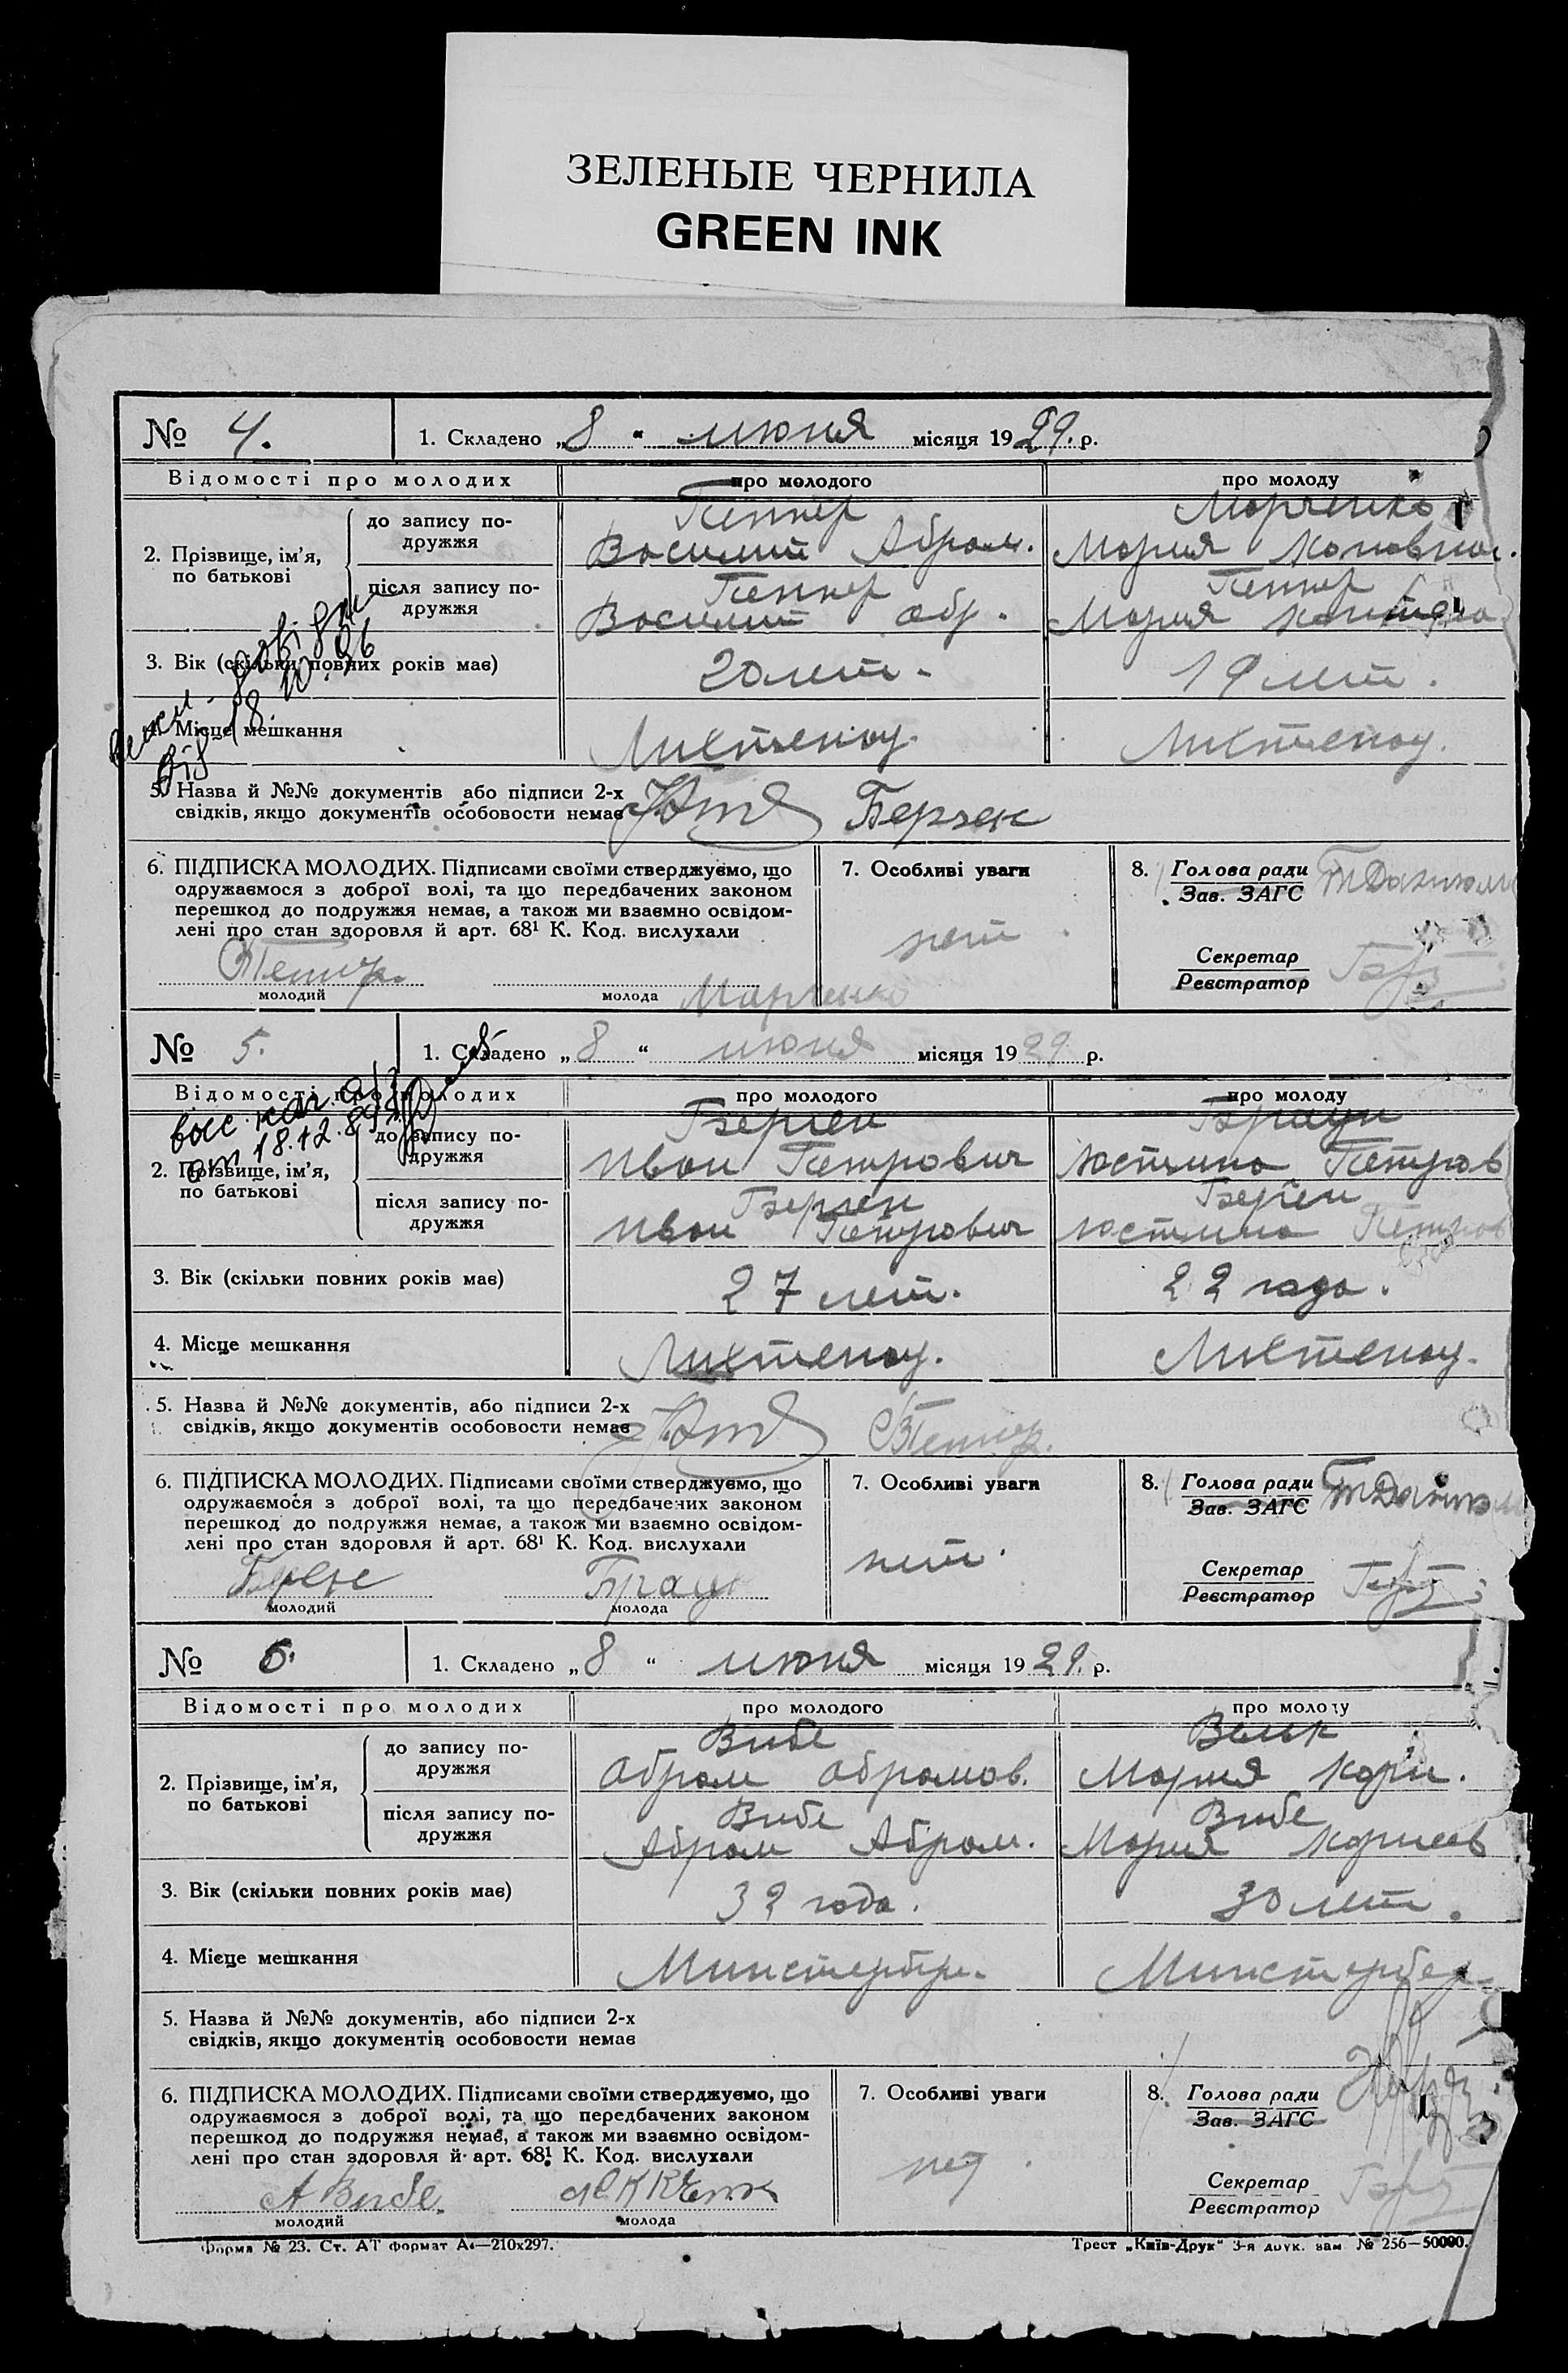 ЗЕЛЕНЫЕ ЧЕРНИЛА
GREEN INK
№ 4.
1. Складено „8“ июня місяця 1929. р.
Відомості про молодих
про молодого
про молоду
2. Прізвище, ім’я, по батькові
до запису подружжя
Пеннер
Василий Абрам.
Марченко
Мария
після запису подружжя
Пеннер
Василий Абр.
Пеннер
Мария
3. Вік (скільки повних років має)
20 лет.
19 лет.
4. Місце мешкання
Лихтенау.
Лихтенау.
від 18.
5. Назва й №№ документів або підписи 2-х
свідків, якщо документів особовости немає
Берген
6. ПІДПИСКА МОЛОДИХ. Підписами своїми стверджуємо, що
одружаємося з доброї волі, та що передбачених законом
перешкод до подружжя немає, а також ми взаємно освідом-
лені про стан здоровля й арт. 68¹ К. Код. вислухали
Пеннер.
молодий
молода Марченко
7. Особливі уваги
нет.
8. Голова ради
Зав. ЗАГС
Секретар
Реєстратор
№ 5.
1. Складено „8“ июня місяця 1929 р.
Відомості про молодих
про молодого
про молоду
от 18.12.
2. Прізвище, ім’я, по батькові
до запису подружжя
Берген
Иван Петрович
Браун
Юстина Петров
після запису подружжя
Берген
Иван Петрович
Берген
Юстина Петров
3. Вік (скільки повних років має)
27 лет.
22 года.
4. Місце мешкання
Лихтенау.
Лихтенау.
5. Назва й №№ документів, або підписи 2-х
свідків, якщо документів особовости немає
Пеннер.
6. ПІДПИСКА МОЛОДИХ. Підписами своїми стверджуємо, що
одружаємося з доброї волі, та що передбачених законом
перешкод до подружжя немає, а також ми взаємно освідом-
лені про стан здоровля й арт. 68¹ К. Код. вислухали
Берген
молодий
Браун
молода
7. Особливі уваги
нет.
8. Голова ради
Зав. ЗАГС
Секретар
Реєстратор
№ 6.
1. Складено „8“ июня місяця 1929. р.
Відомості про молодих
про молодого
про молоду
2. Прізвище, ім’я, по батькові
до запису подружжя
Вибе
Абрам Абрамов.
Мария Корн.
після запису подружжя
Вибе
Абрам Абрам.
Вибе
Мария Корнеев
3. Вік (скільки повних років має)
32 года.
30 лет.
4. Місце мешкання
Минстерберг.
Минстерберг
5. Назва й №№ документів, або підписи 2-х
свідків, якщо документів особовости немає
6. ПІДПИСКА МОЛОДИХ. Підписами своїми стверджуємо, що
одружаємося з доброї волі, та що передбачених законом
перешкод до подружжя немає, а також ми взаємно освідом-
лені про стан здоровля й арт. 68¹ К. Код. вислухали
А Вибе.
молодий
молода
7. Особливі уваги
нет.
8. Голова ради
Зав. ЗАГС
Секретар
Реєстратор
Форма № 23. Ст. АТ формат А4—210x297.
Трест „Київ-Друк“ 3-я друк. зам. № 256—50000.